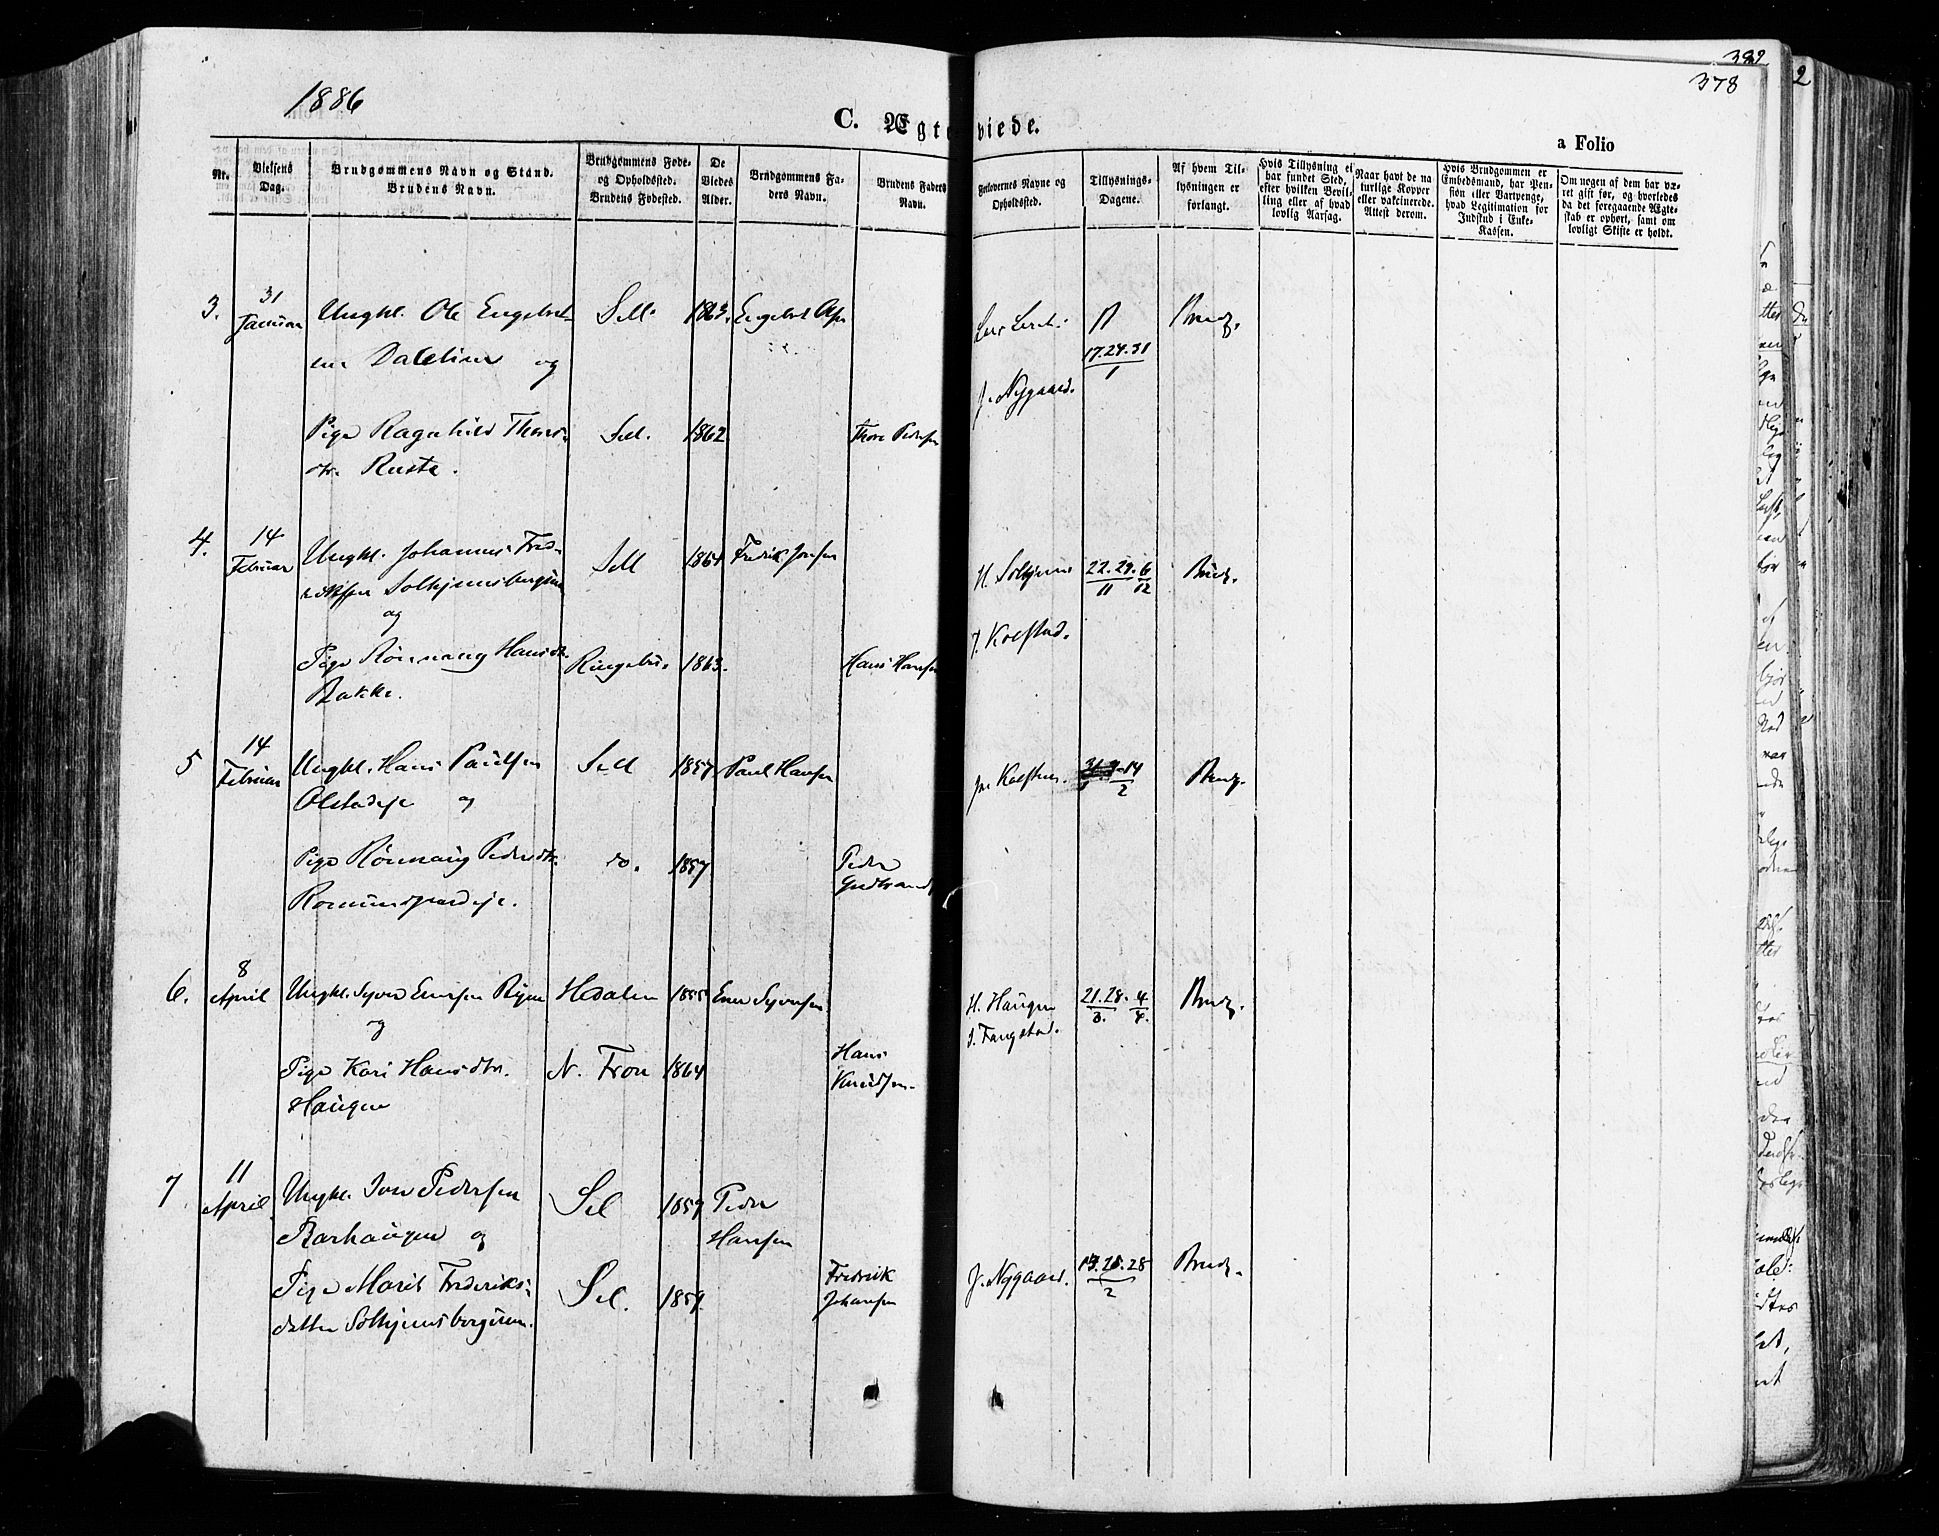 1886
382
378
2
C. Ægteviede.
a Folio
Nr.
Vielsens Dag.
Brudgommens Navn og Stand. Brudens Navn.
Brudgommens Føde- og Opholdssted. Brudens Fødested.
De Viedes Alder.
Brudgommens Faders Navn.
Brudens Faders Navn.
Forlovernes Navne og Opholdssted.
Tillysnings-Dagene.
Af hvem Tillysningen er forlangt.
Hvis Tillysning ei har fundet Sted, efter hvilken Bevilling eller af hvad lovlig Aarsag.
Naar havt de naturlige Kopper eller vakcinerede. Attest derom.
Hvis Brudgommen er Embedsmand, har Pension eller Vartpenge, hvad Legitimation for Indskud i Enke-Kassen.
Om nogen af dem har været gift før, og hvorledes da det foregaaende Ægteskab er ophørt, samt om lovligt Skifte er holdt.
3.
31 Januar
Ungkl. Ole Engebret-
sen og
Sell.
1863.
Engebret
17.24.31
1
Brudg.
J. Nygaard.
Pige Ragnhild Thores-
dtr. Ruste.
Sell.
1862
Thore Pedersen
4.
14 Februar
Ungkl. Johannes Fred-
rikssen Solhjemsbergene
og
Sell
1864
Fredrik Jonsen
22.29.6
11 12
Brudg.
J. Kolstad.
Pige Rønnaug Hansdtr.
Bakke.
Ringebu
1863.
Hans Hansen
5
14 Februar
Ungkl. Hans Paulsen
Olstadeje og
Sell
1857
Paul Hansen
14
2
Brudg.
Pige Rønnaug Pedersdtr.
Romundgaardeje.
do.
1857
Peder
Gudbrands
6.
8 April
Ungkl. Syver Ensen
og
Hedalen
1855
Syversen
H. Haugen
21.28. 4
3. 4.
Brudg.
Pige Kari Hansdtr.
Haugen
N. Fron
1864
Hans
Knudsen
7
11 April
Ungkl. Jon Pedersen
og
Sel
1859
Peder
Hansen
J. Nygaard.
28
2
Brudg.
Pige Marit Frederiks-
datter Solhjemsbergene.
Sel.
1859.
Fredrik
Johansen